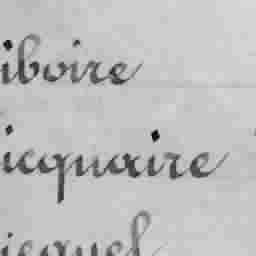 iboire
icquaire
icquel